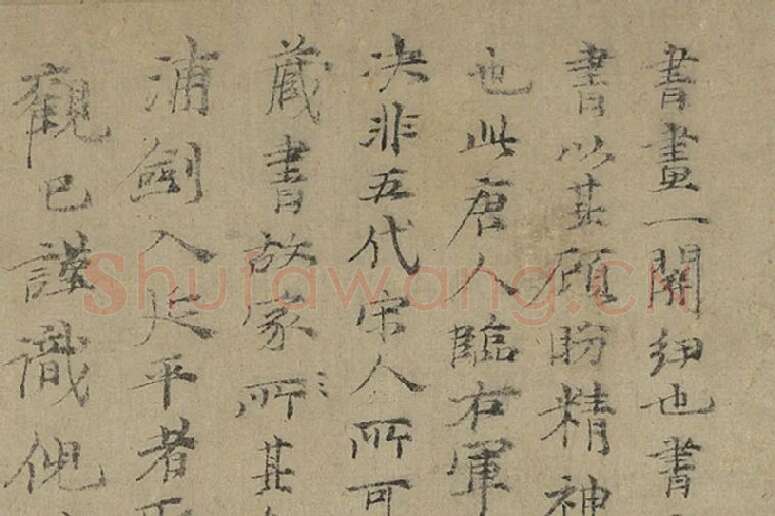 書畫一關紐也書
書以其顧盼精神
也此唐人臨右軍
決非五代宋人所可
藏書故家所其
浦劍入延平者
觀已謹識倪
Shufawang.cn